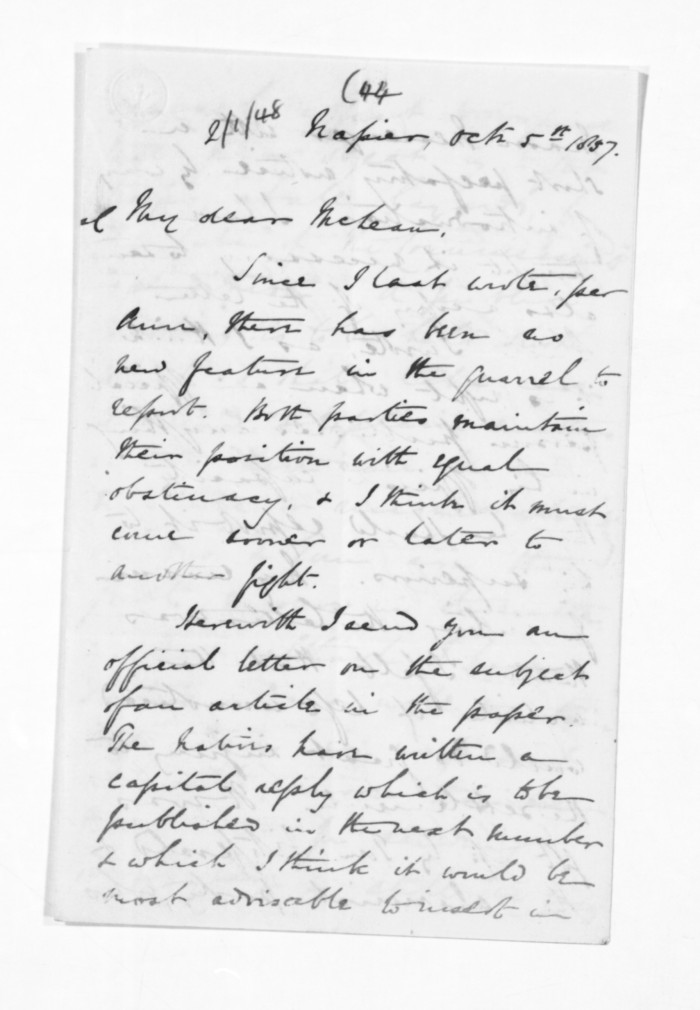 (44
2/1/48 Napier, Octr 5th 1857.
My dear McLean,
Since I last wrote, per
Ann, there has been no
new feature in the quarrel to
report. Both parties maintain
their position with equal
obstinacy, & I think it must
come sooner or later to
another fight.
Herewith I send you an
official letter on the subject
of an article in the paper.
The natives have written a
capital reply which is to be
published in the next number
& which I think it would be
most adviseable to insert in